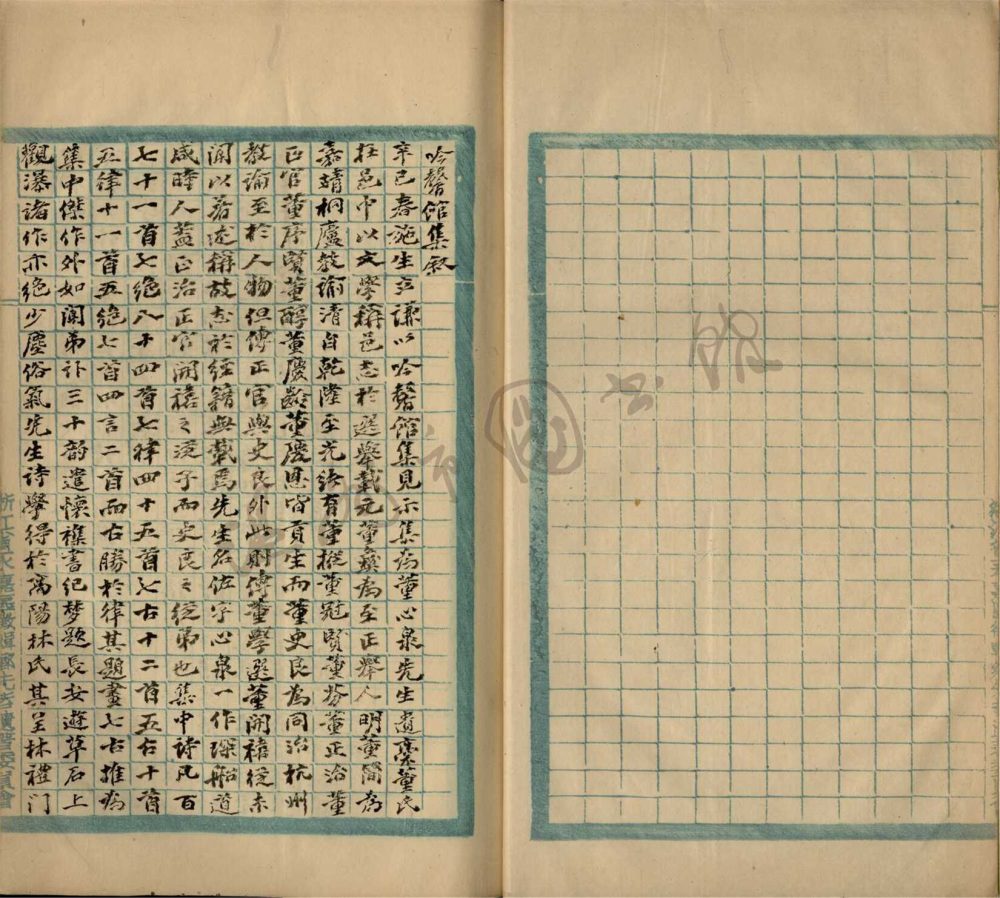 吟馨館集叙
辛巳春施生立謙以吟馨館集見示集為董心泉先生遺稾董氏
在邑中以文學稱邑志於選舉載元董彝為至正舉人明董簡為
嘉靖桐廬教諭清自乾隆至光緒有董樅董冠賢董芬董正治董
正官董序賢董醇董慶齡董慶恩皆貢生而董史良為同治杭州
教諭至於人物但傳正官與史良外此則傳董學選董開禧從未
聞以著述稱故志於經籍無載焉先生名佐字心泉一作琛船道
咸時人蓋正治正官開禧之從子而史良之從弟也集中詩凡百
七十一首七絶八十四首七律四十五首七古十二首五古十首
五律十一首五絶七首四言二首而古勝於律其題畫七古推為
集中傑作外如聞弟訃三十韵遣懷襍書紀梦題長安遊草石上
觀瀑諸作亦絶少塵俗氣先生詩學得於萬陽林氏其呈林禮门
浙江省永嘉區徵輯鄉先哲遺著委員會